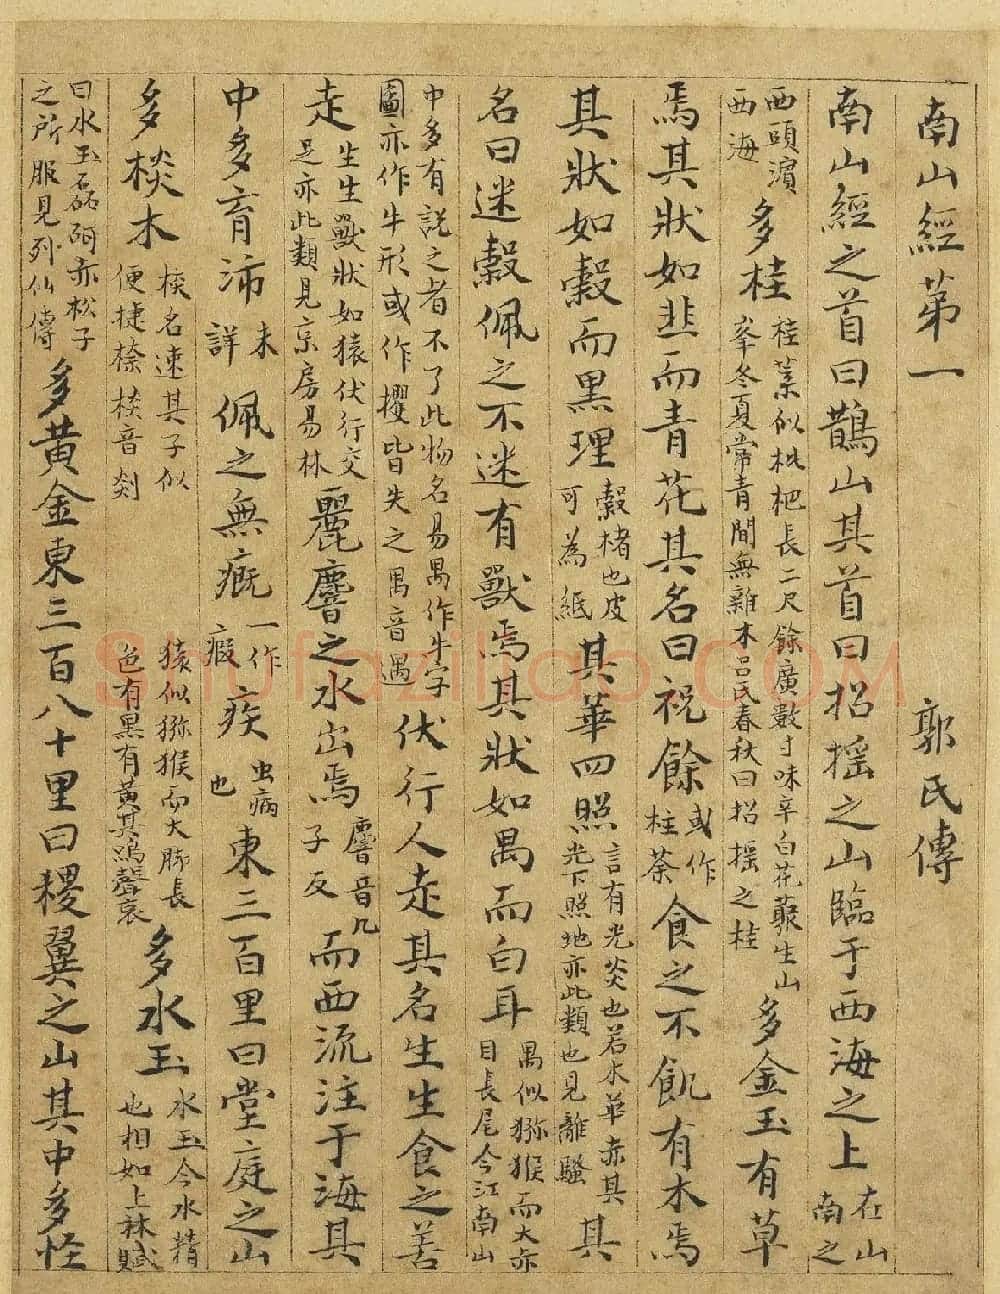 南山經第一　郭氏傳
南山經之首曰鵲山其首曰招搖之山臨于西海之上在山南之
西頭濱西海多桂桂葉似枇杷長二尺餘廣數寸味辛白花叢生山峯冬夏常青間無雜木呂氏春秋曰招搖之桂多金玉有草
焉其狀如韭而青花其名曰祝餘或作柱荼食之不飢有木焉
其狀如穀而黑理穀楮也皮可為紙其華四照言有光炎也若木華赤其光下照地亦此類也見離騷其
名曰迷穀佩之不迷有獸焉其狀如禺而白耳禺似獼猴而大赤目長尾今江南山
中多有說之者不了此物名易禺作牛字圖亦作牛形或作玃皆失之禺音遇伏行人走其名生生食之善
走生生獸狀如猿伏行交足亦此類見京房易林麗𪊨之水出焉𪊨音几子反而西流注于海其
中多育沛未詳佩之無一作瘕疾虫病也東三百里曰堂庭之山
多棪木棪名速其子似便捷棪音剡猿似獼猴而大脚長色有黑有黃其鳴聲哀多水玉水玉今水精也相如上林賦
曰水玉磊砢赤松子之所服見列仙傳多黃金東三百八十里曰稷翼之山其中多怪
Shufaziliao.COM